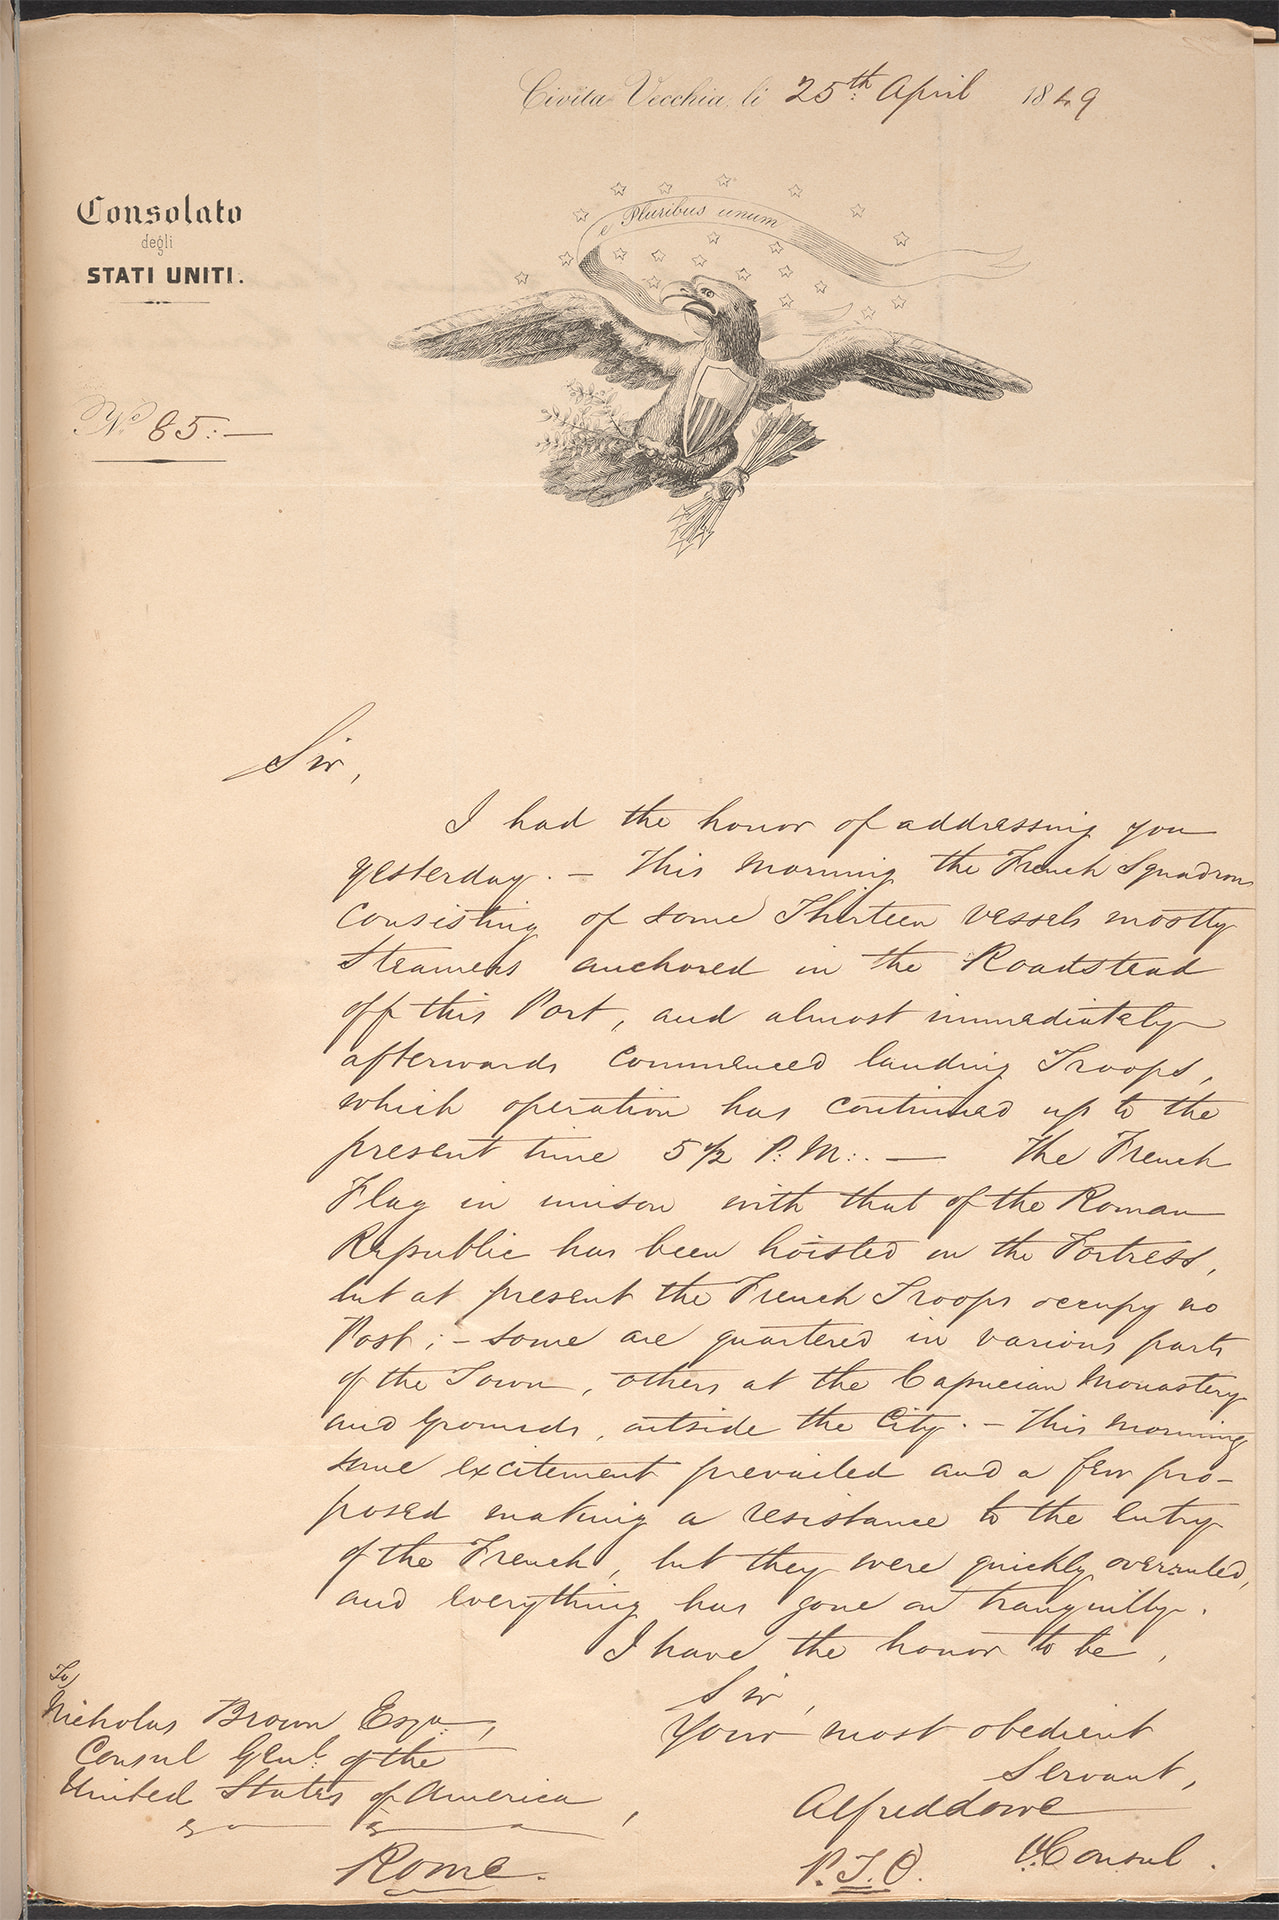 Civita Vecchia, li 25th April 1849
Consolato
degli
STATI UNITI.
e Pluribus unum
No. 85:—
Sir,
I had the honor of addressing you
yesterday. — This morning the French Squadron
consisting of some Thirteen vessels mostly
Steamers anchored in the Roadstead
off this Port, and almost immediately
afterwards commenced landing Troops,
which operation has continued up to the
present time 5 1/2 P.M:. — The French
Flag in unison with that of the Roman
Republic has been hoisted on the Fortress,
but at present the French Troops occupy no
Post; — some are quartered in various parts
of the Town, others at the Capucian Monastery
and Grounds, outside the City. — This morning
some excitement prevailed and a few pro-
posed making a resistance to the entry
of the French, but they were quickly overruled,
and everything has gone on tranquilly.
I have the honor to be,
Sir,
Your most obedient
Servant,
Alfred Lowe
V. Consul.
P.T.O.
To
Nicholas Brown Esqr.,
Consul Genl. of the
United States of America,
&. &. &.
Rome.